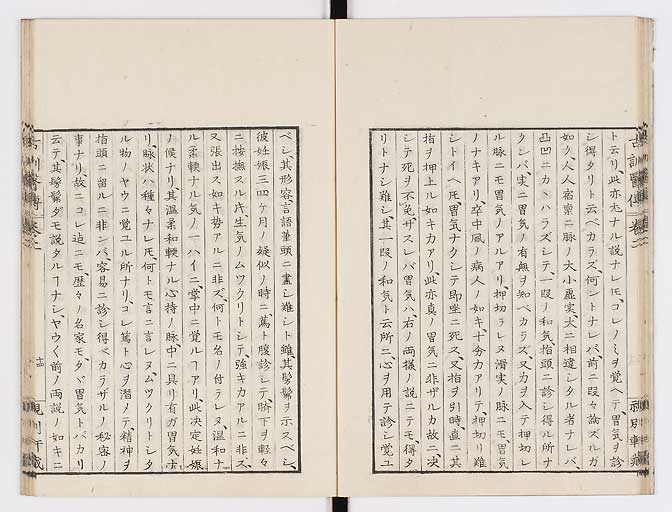 ト云リ、此亦尤ナル説ナレモ、コレノミヲ覚ヘテ胃気ヲ診
シ得タリト云ベカラズ、何ントナレバ、前ニ段々論ズルガ
如ク、人人宿稟ニ脉ノ大小虚実、大ニ相違シタル者ナレバ、
凸凹ニカヽハラズシテ、一段ノ和気、指頭ニ診シ得ル所ナ
クンバ、実ニ胃気ノ有無ヲ知ベカラズ、又力ヲ入テ押切レ
ルニモ胃気ノアルアリ、押切ラレヌ滑実ノ脉ニモ、胃気
ノナキアリ、卒中風ノ病人ノ如キ、十分力アリテ、押切リ難
シトイヘ𪜈胃気ナクシテ即坐ニ死ス、又指ヲ引時、直ニ其
指ヲ押上ル如キ力アリ、此亦真ノ胃気ニ非ザルカ故ニ、决
シテ死ヲ不免、ザスレバ胃気ハ右ノ両様ノ説ニテモ、得タ
リトナシ難シ、其一段ノ和気ト云所ニ心ヲ用テ診シ覚ユ
ベシ、其形容言語筆頭ニ盡シ難シト雖、其髣髴ヲ示スベシ、
彼妊娠三四ケ月ノ疑似ノ時ニ、篤ト腹診シテ、臍下ヲ軽々
ニ按撫スル𪜈、生気ノムツクリトシテ、強キ力アルニ非ズ、
又張出ス如キ勢アルニ非ズ、何トモ名ノ付ラレヌ、温和ナ
ル柔軟ナル気ノ一ハイニ、掌中ニ覚ルヿアリ、此决定妊娠
ノ候ナリ、其温柔和軟ナル心持ノ脉中ニ具リ有ガ胃気ナ
リ、脉状ハ種々ナレ𪜈、何トモ言ニ言レヌ、ムツクリトシタ
ル物ノヤウニ覚ユル所ナリ、コレ篤ト心ヲ潜メテ、精神ヲ
指頭ニ留ルニ非ンバ、容易ニ診シ得ベカラザルノ秘密ノ
事ナリ、故ニコレ迠ニモ、歴々ノ名家モ、タヾ胃気トバカリ
云テ、其髣髴ダモ説タルヿナシ、ヤウ〱前ノ両説ノ如キニ
十四